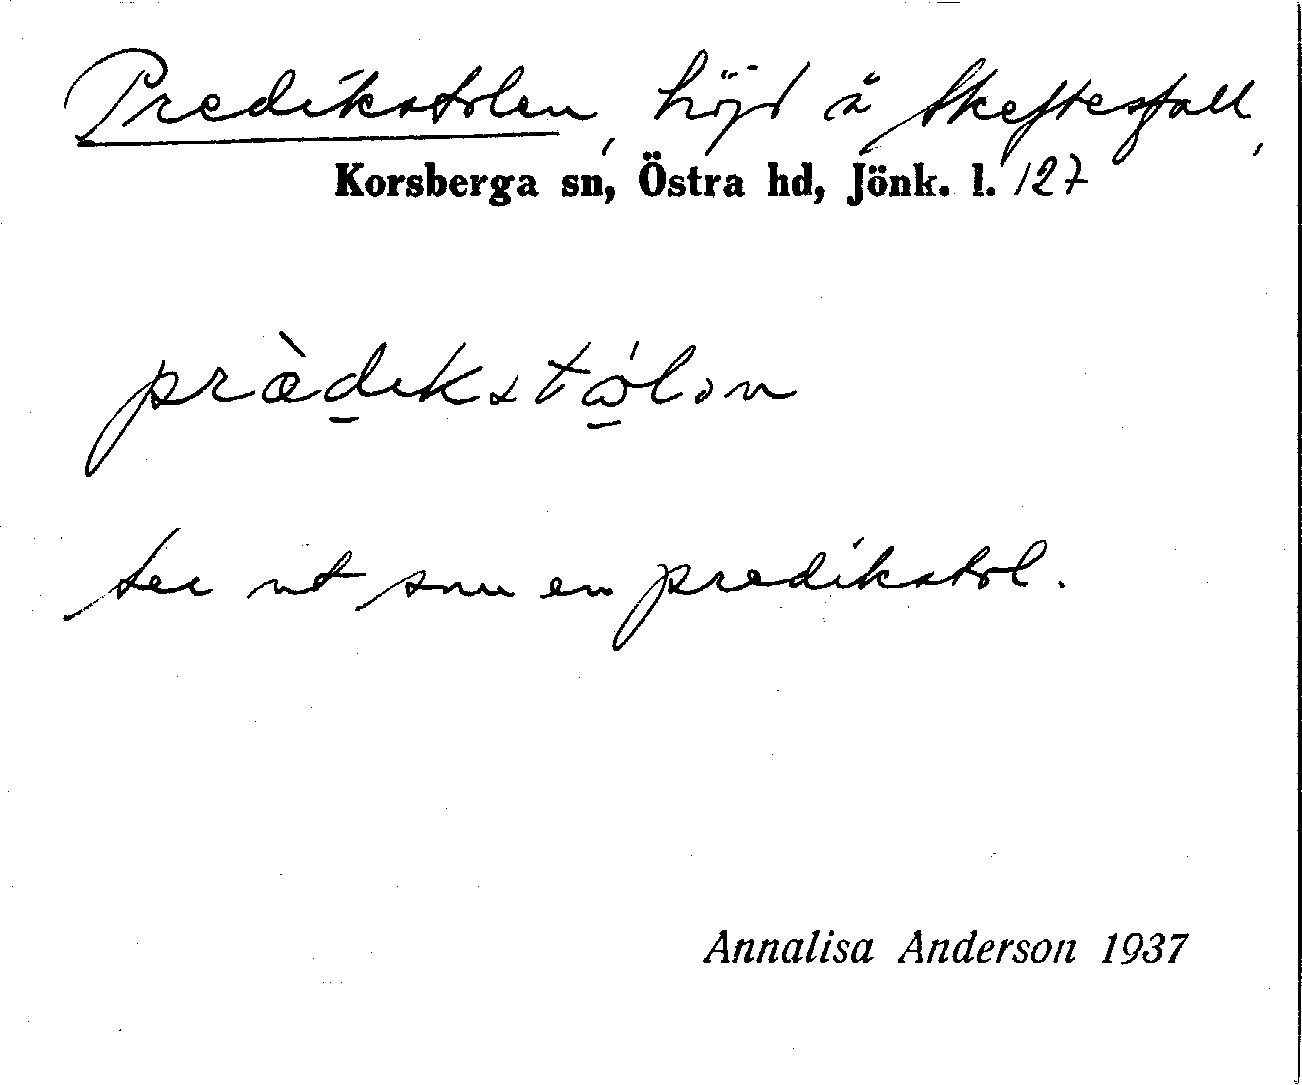 Predikstolen, höjd å Skeftesfall,
Korsberga sn, Östra hd, Jönk. l. 127
præ̀dikstώ̣lən
ser ut som en predikstol.
Annalisa Anderson 1937